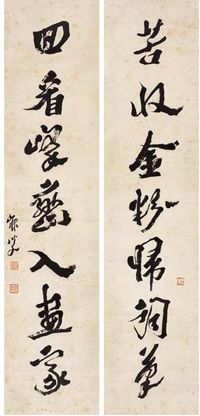 苦收金粉歸詞筆
回看峰巒入畫家